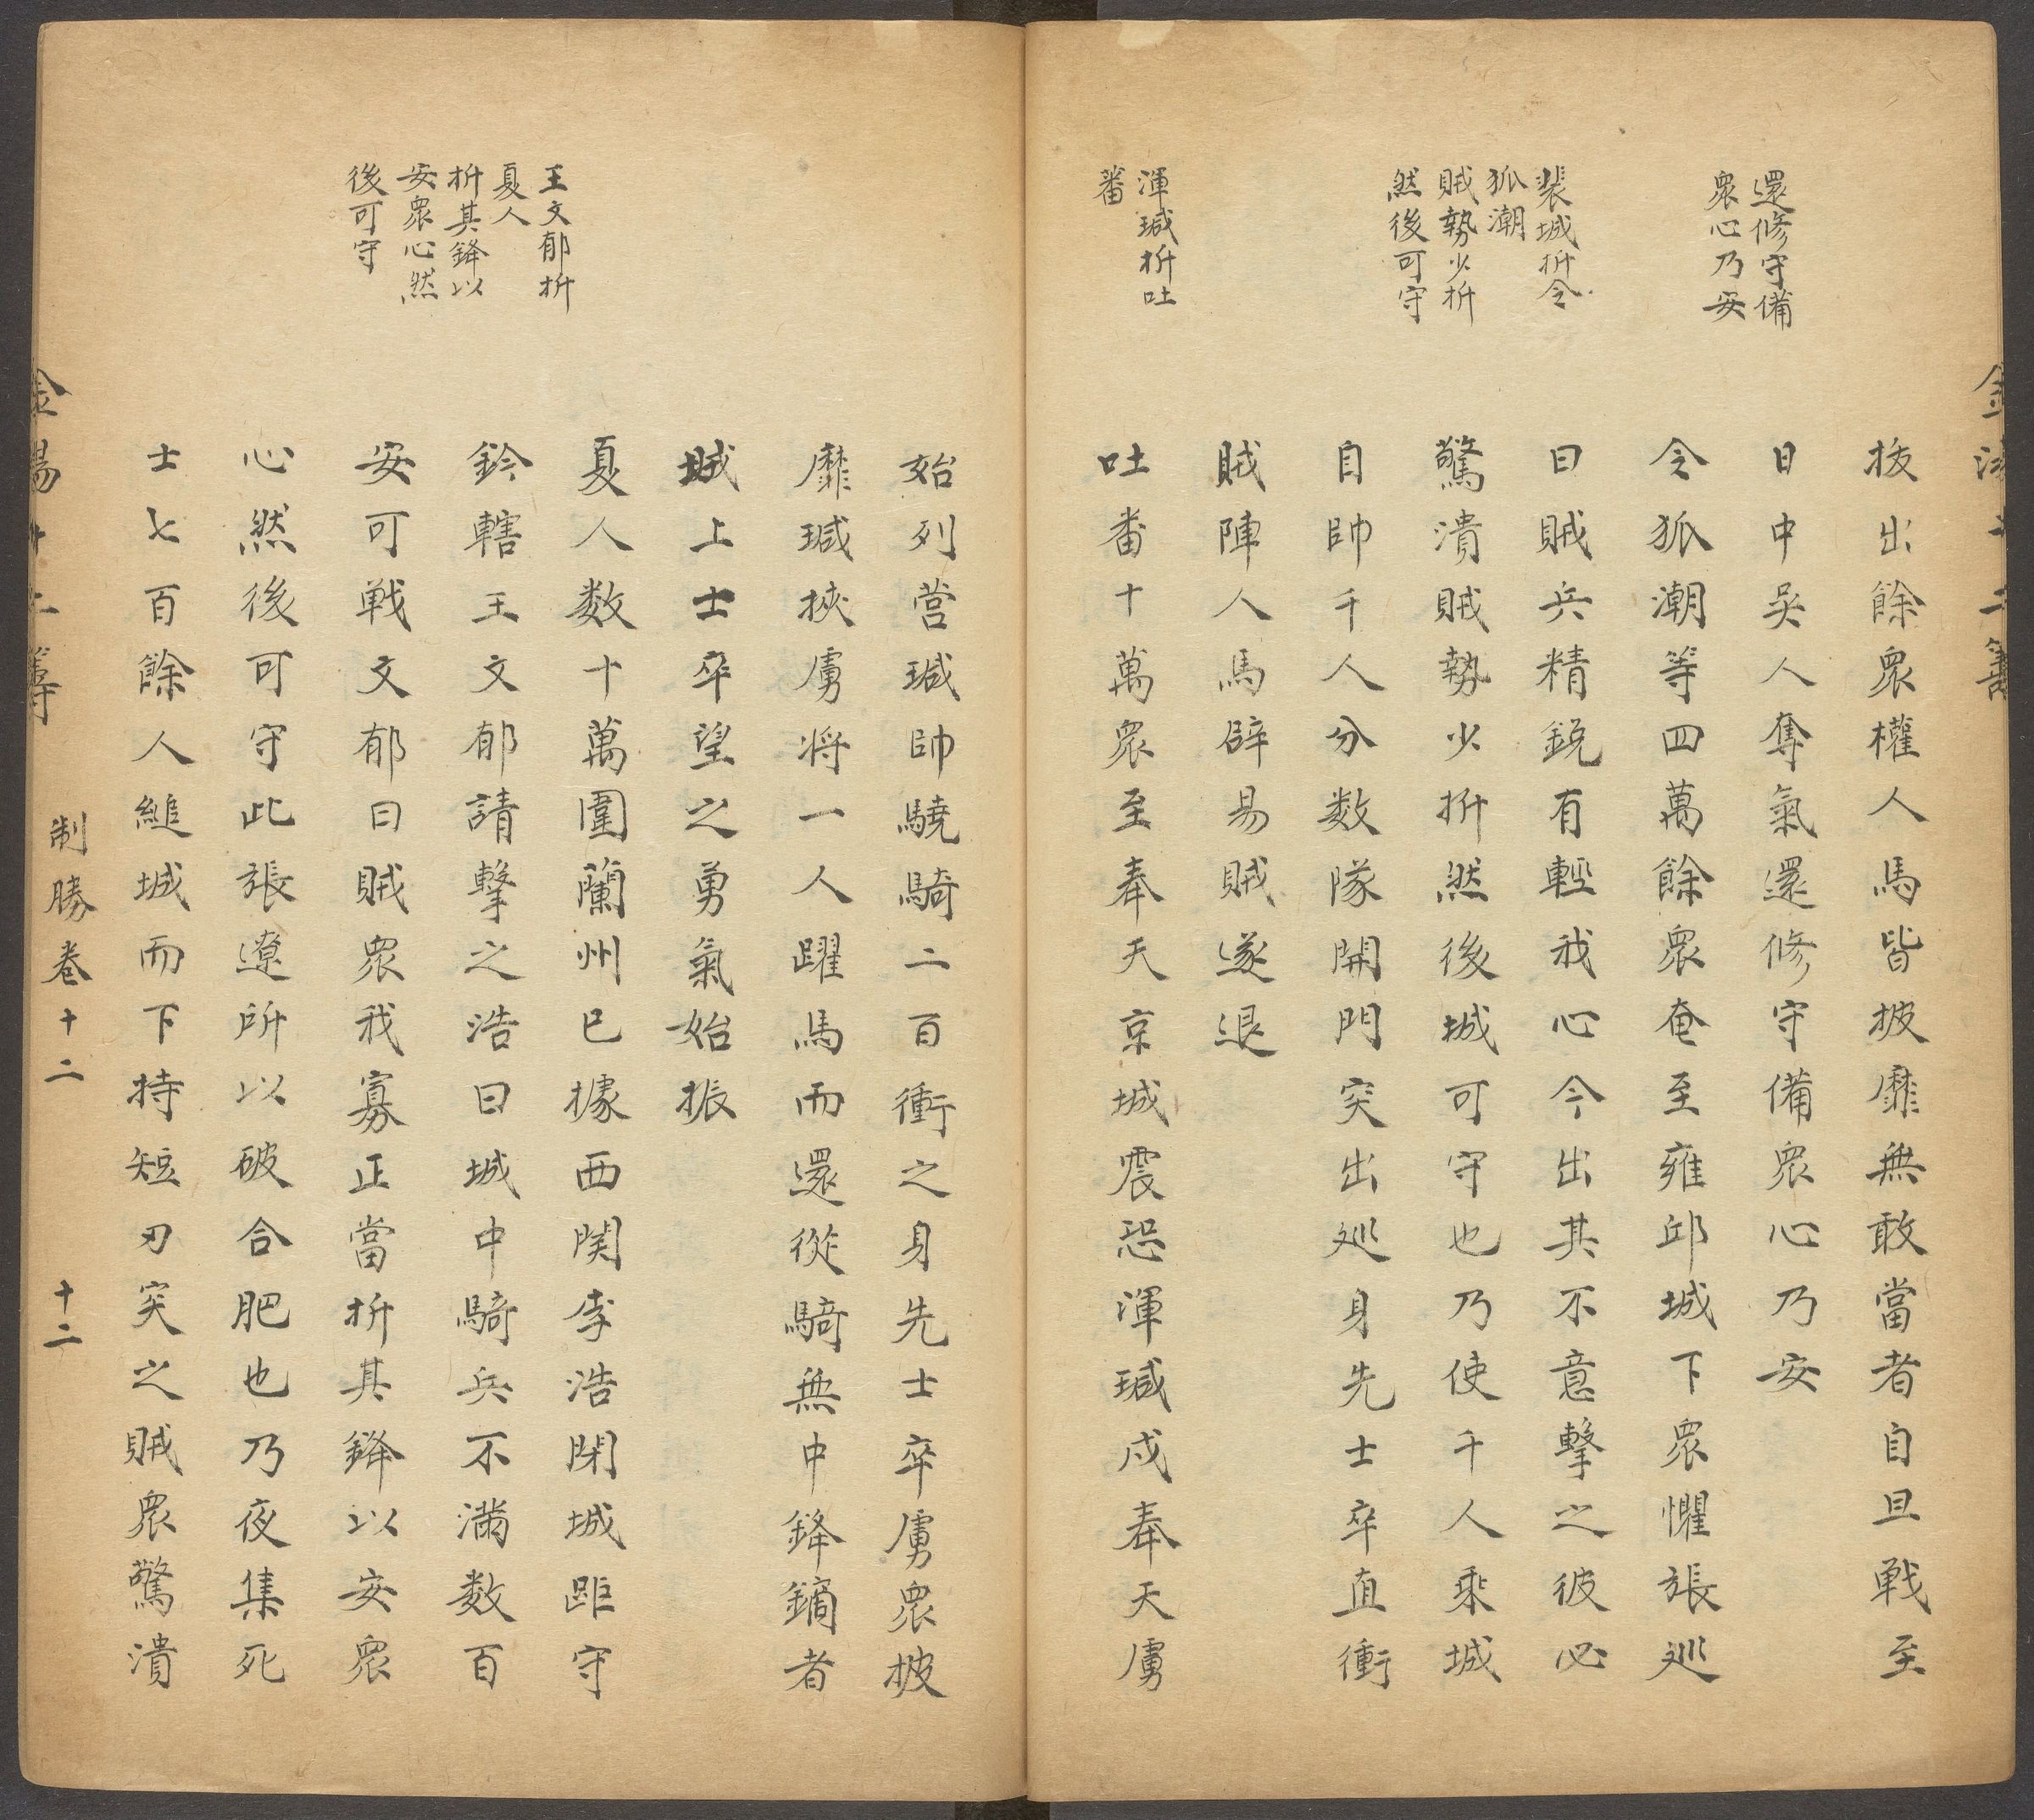 還修守備
眾心乃安
裴城折令
狐潮
賊勢少折
然後可守
渾瑊折吐
蕃
拔出餘眾權人馬皆披靡無敢當者自旦戰至
日中吳人奪氣還修守備眾心乃安
令狐潮等四萬餘眾奄至雍邱城下眾懼張巡
曰賊兵精銳有輕我心今出其不意擊之彼必
驚潰賊勢少折然後城可守也乃使千人乘城
自帥千人分数隊開門突出巡身先士卒直衝
賊陣人馬辟易賊遂退
吐番十萬眾至奉天京城震恐渾瑊戍奉天虜
王文郁折
夏人
折其鋒以
安眾心然
後可守
始列营瑊帥驍騎二百衝之身先士卒虜眾披
靡瑊挾虜将一人躍馬而還從騎無中鋒鏑者
城上士卒望之勇氣始振
夏人数十萬圍蘭州已據西関李浩閉城距守
鈐轄王文郁請擊之浩曰城中騎兵不满数百
安可戰文郁曰賊眾我寡正當折其鋒以安眾
心然後可守此張遼所以破合肥也乃夜集死
士七百餘人縋城而下持短刃突之賊眾驚潰
制勝卷十二
十二